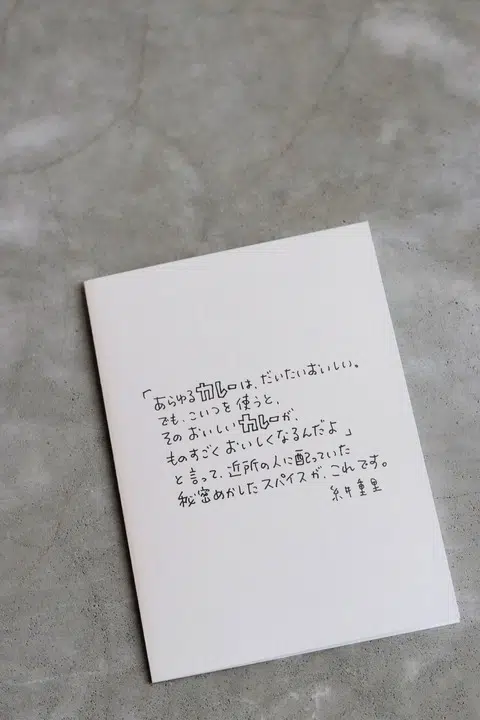 「あらゆるカレーは、だいたいおいしい。
でも、こいつを使うと、
そのおいしいカレーが、
ものすごくおいしくなるんだよ」
と言って、近所の人に配っていた
秘密めかしたスパイスが、これです。
糸井重里